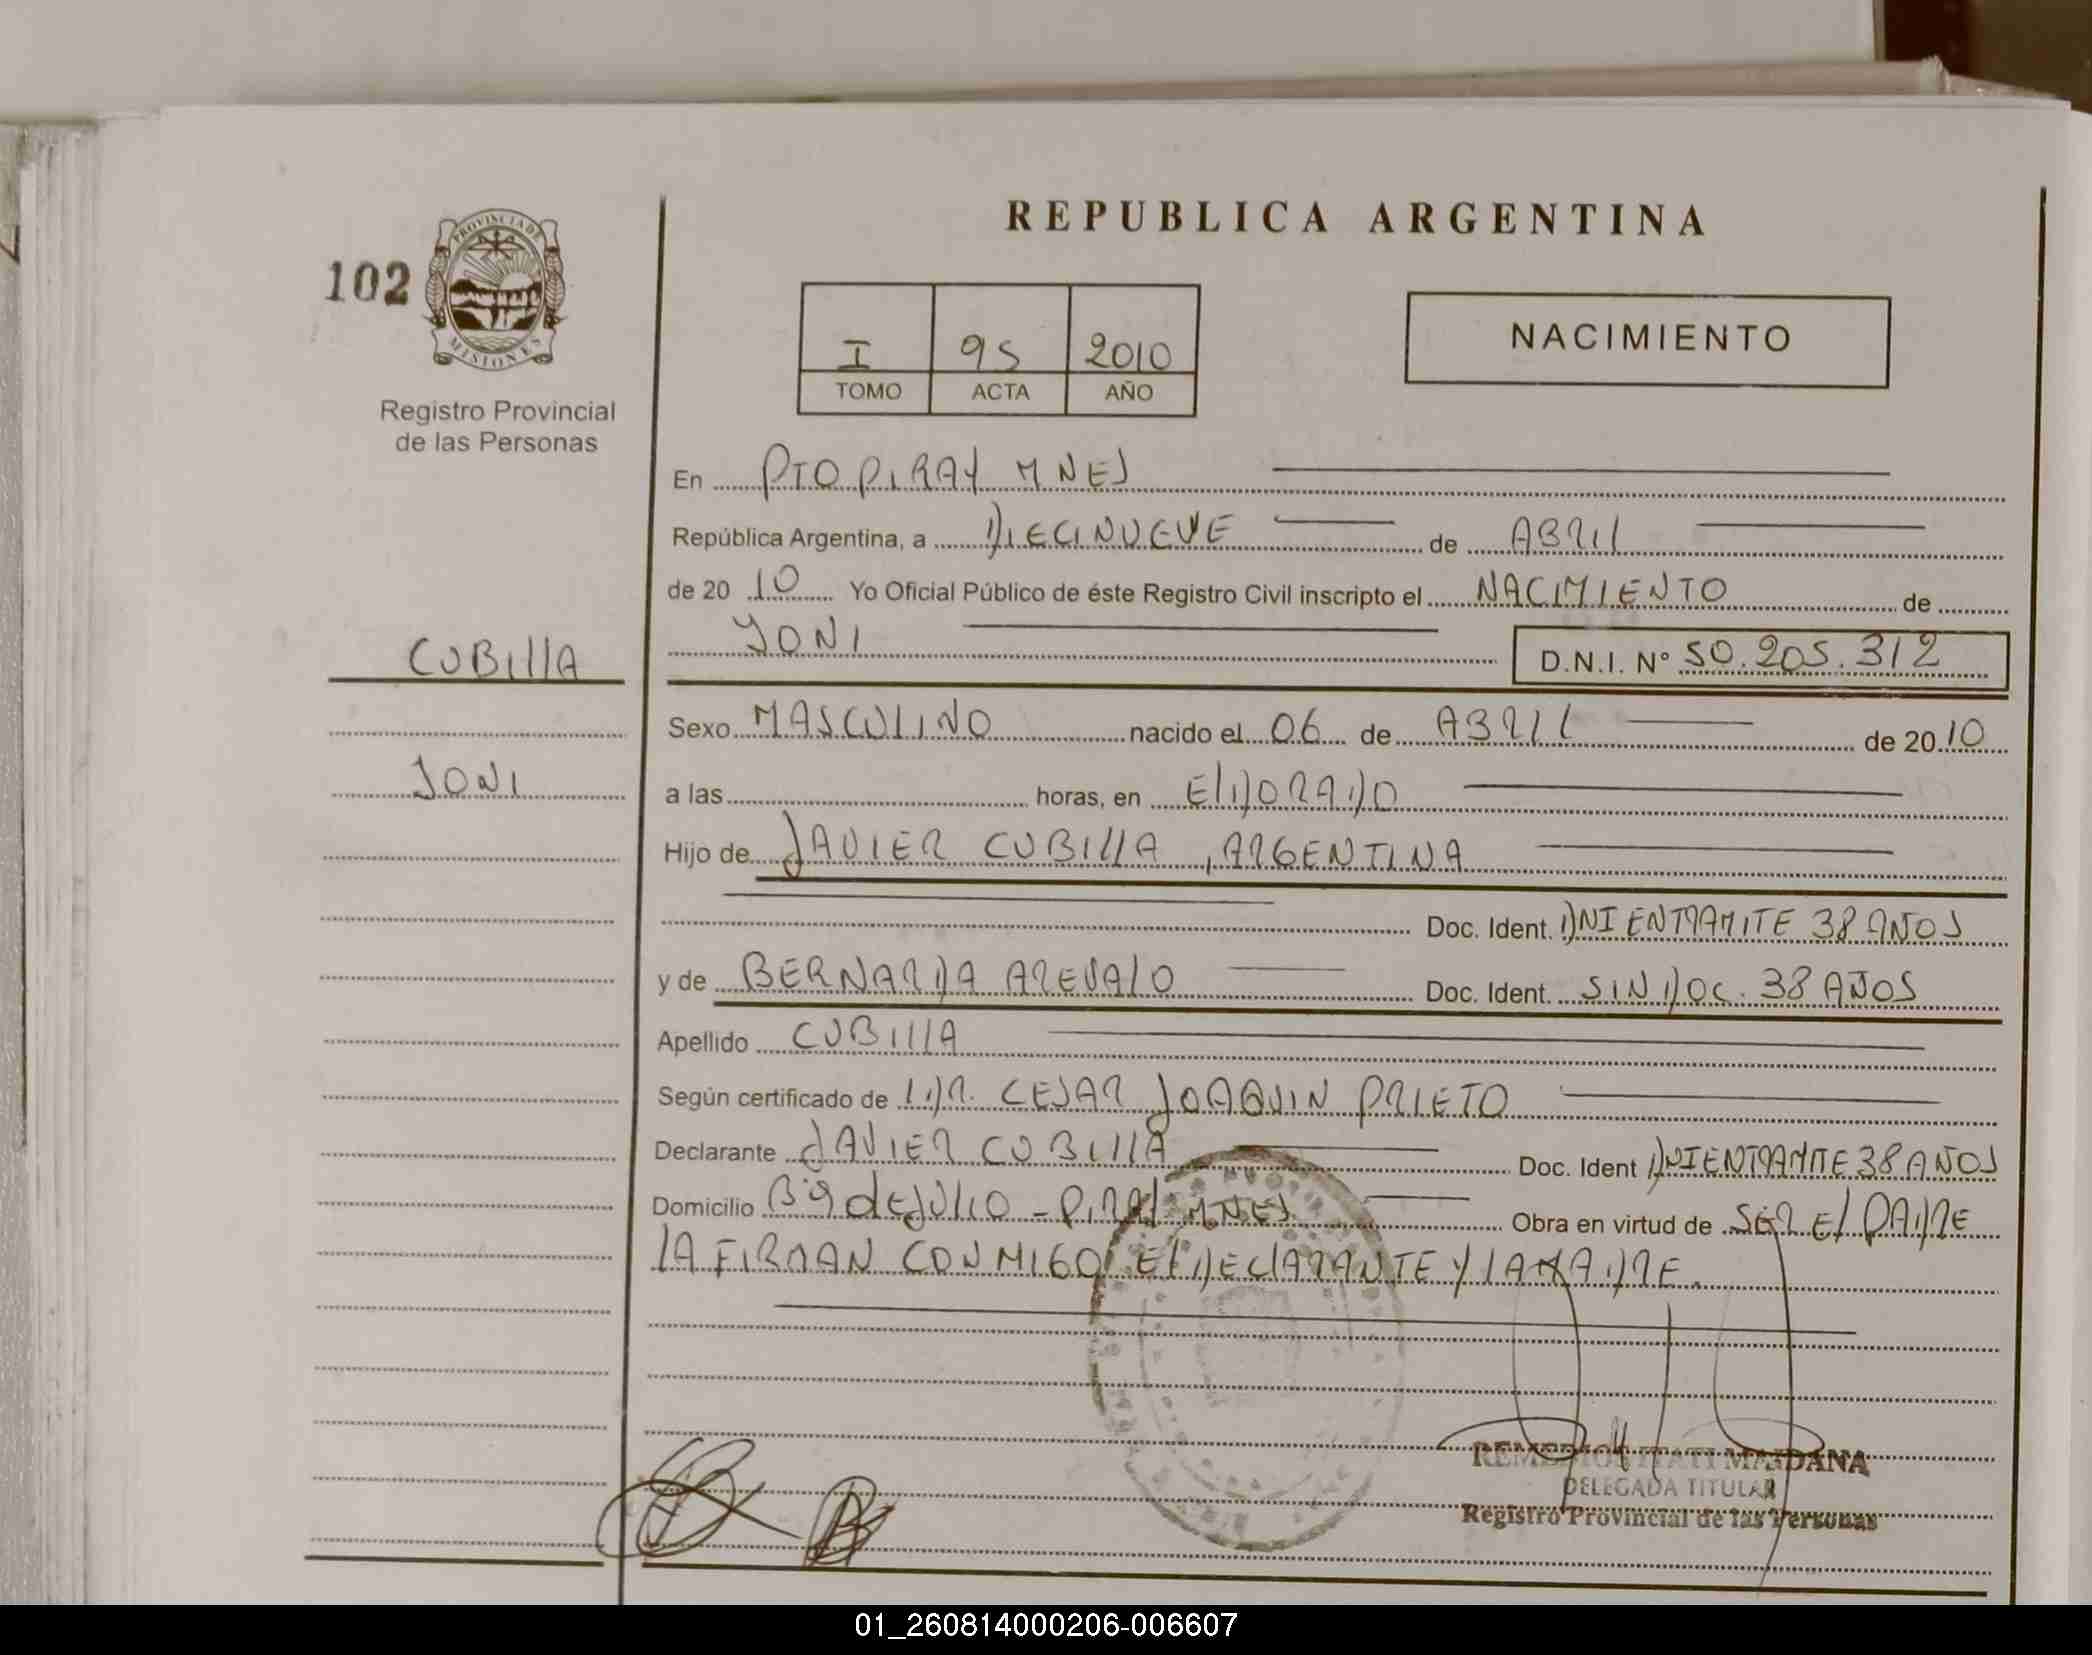 REPUBLICA ARGENTINA
102
PROVINCIA DE
MISIONES
Registro Provincial
de las Personas
I 95 2010
TOMO ACTA AÑO
NACIMIENTO
En PTO PIRAY MNES
República Argentina, a DIECINUEVE de ABRIL
de 20 10 Yo Oficial Público de éste Registro Civil inscripto el NACIMIENTO de
JONI D.N.I. Nº 50.205.312
CUBILLA
JONI
Sexo MASCULINO nacido el 06 de ABRIL de 20 10
a las horas, en ELDORADO
Hijo de JAVIER CUBILLA, ARGENTINA
Doc. Ident. DNI EN TRAMITE 38 AÑOS
y de BERNARDA AREVALO Doc. Ident. SIN DOC. 38 AÑOS
Apellido CUBILLA
Según certificado de DR. CESAR JOAQUIN PRIETO
Declarante JAVIER CUBILLA Doc. Ident DNI EN TRAMITE 38 AÑOS
Domicilio Bº 9 de JULIO - PIRAY MNES Obra en virtud de SER EL PADRE
LA FIRMAN CONMIGO EL DECLARANTE Y LA MADRE.
REMEDIOS ITATI MAIDANA
DELEGADA TITULAR
Registro Provincial de las Personas
01_260814000206-006607